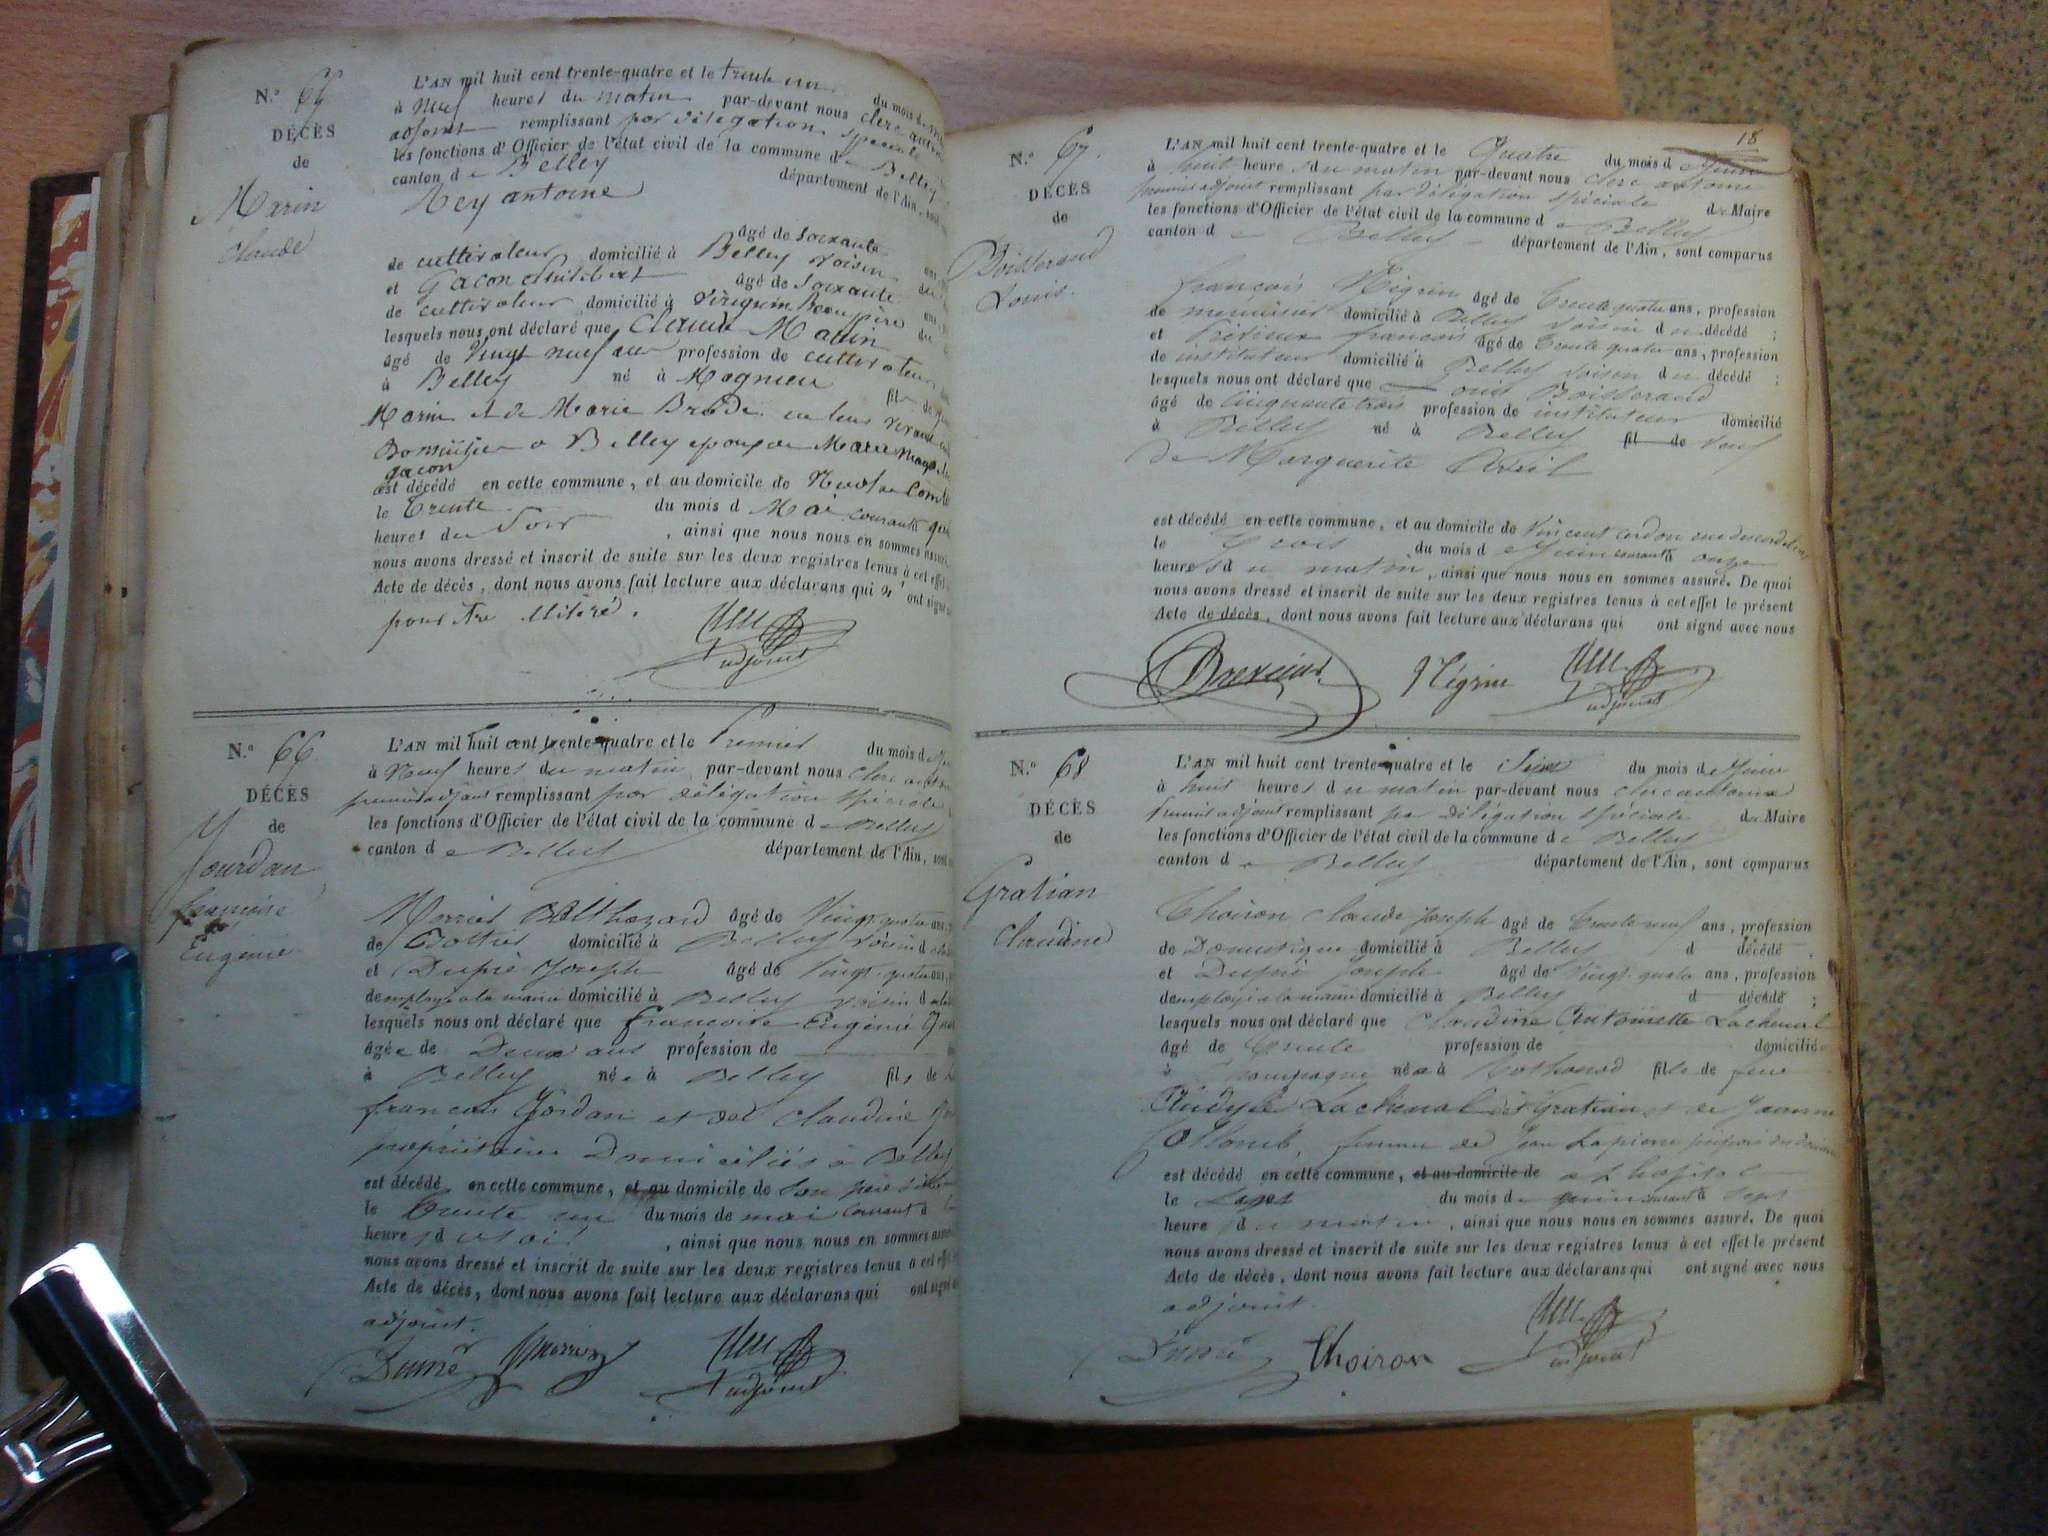 N.° 
DÉCÈS
de
Marin
Claude
L'AN mil huit cent trente-quatre et le trente un du mois d
à neuf heures du matin par-devant nous clerc
adjoint remplissant par délégation spéciale
les fonctions d'Officier de l'état civil de la commune de Belley
canton de Belley département de l'Ain,
Rey antoine
âgé de soixante
de cultivateur domicilié à Belley voisin
et Gacon âgé de soixante
de cultivateur domicilié à Beau père
lesquels nous ont déclaré que Claude Marin
âgé de vingt neuf ans profession de cultivateur
à Belley né à Magnieu fils de
Marin et de Marie
à Belley époux de Marie
gacon
est décédé en cette commune, et au domicile de
le trente du mois d Mai courant à
heures du Soir , ainsi que nous nous en sommes
nous avons dressé et inscrit de suite sur les deux registres tenus à cet
Acte de décès, dont nous avons fait lecture aux déclarans qui n'ont signé
pour être
adjoint
N.° 66
DÉCÈS
de
Jourdan
françoise
Eugénie
L'AN mil huit cent trente-quatre et le Premier du mois de
à Neuf heures du matin par-devant nous clerc
premier adjoint remplissant par délégation spéciale
les fonctions d'Officier de l'état civil de la commune de Belley
canton de Belley département de l'Ain,
âgé de Vingt quatre ans,
de domicilié à Belley voisin d
et Dupré Joseph âgé de Vingt quatre ans,
d employé à la mairie domicilié à Belley voisin d
lesquels nous ont déclaré que françoise Eugénie
âgée de Deux ans profession de
à Belley née à Belley fille de
françois Jordan et de Claudine
propriétaires Domiciliés à Belley
est décédé en cette commune, et au domicile de son père
le trente un du mois de mai courant
heures du soir , ainsi que nous nous en sommes
nous avons dressé et inscrit de suite sur les deux registres tenus à cet
Acte de décès, dont nous avons fait lecture aux déclarans qui ont signé
adjoint.
Dupré
adjoint
18
N.° 67.
DÉCÈS
de
Boisserand
Louis.
L'AN mil huit cent trente-quatre et le Quatre du mois de Juin
à huit heures du matin par-devant nous clerc antoine
premier adjoint remplissant par délégation spéciale du Maire
les fonctions d'Officier de l'état civil de la commune de Belley
canton de Belley département de l'Ain, sont comparus
françois Négrin âgé de trente quatre ans, profession
de menuisier domicilié à Belley voisin du décédé ;
et françois âgé de trente quatre ans, profession
de instituteur domicilié à Belley voisin du décédé ;
lesquels nous ont déclaré que Louis Boisserand
âgé de cinquante trois profession de instituteur domicilié
à Belley né à Belley fils de veuf
de Marguerite
est décédé en cette commune, et au domicile de Vincent cerdon rue des cordeliers
le trois du mois de Juin courant à onze
heures du matin , ainsi que nous nous en sommes assuré. De quoi
nous avons dressé et inscrit de suite sur les deux registres tenus à cet effet le présent
Acte de décès, dont nous avons fait lecture aux déclarans qui ont signé avec nous
Négrin
adjoint
N.° 68
DÉCÈS
de
Gratian
Claudine
L'AN mil huit cent trente-quatre et le du mois de Juin
à huit heures du matin par-devant nous clerc antoine
premier adjoint remplissant par délégation spéciale du Maire
les fonctions d'Officier de l'état civil de la commune de Belley
canton de Belley département de l'Ain, sont comparus
Thoiron Claude Joseph âgé de trente neuf ans, profession
de Domestique domicilié à Belley d décédé
et Dupré Joseph âgé de Vingt quatre ans, profession
d employé à la mairie domicilié à Belley d décédé ;
lesquels nous ont déclaré que Claudine Antoinette Lachenal
âgé de trente profession de domicilié
à née à Rothonod fille de feu
Lachenal dit Gratian et de Jeanne
femme de Jean Lapierre
est décédé en cette commune, et au domicile de à l'hopital
le du mois de juin courant à sept
heures du matin , ainsi que nous nous en sommes assuré. De quoi
nous avons dressé et inscrit de suite sur les deux registres tenus à cet effet le présent
Acte de décès, dont nous avons fait lecture aux déclarans qui ont signé avec nous
adjoint.
Dupré
thoiron
adjoint